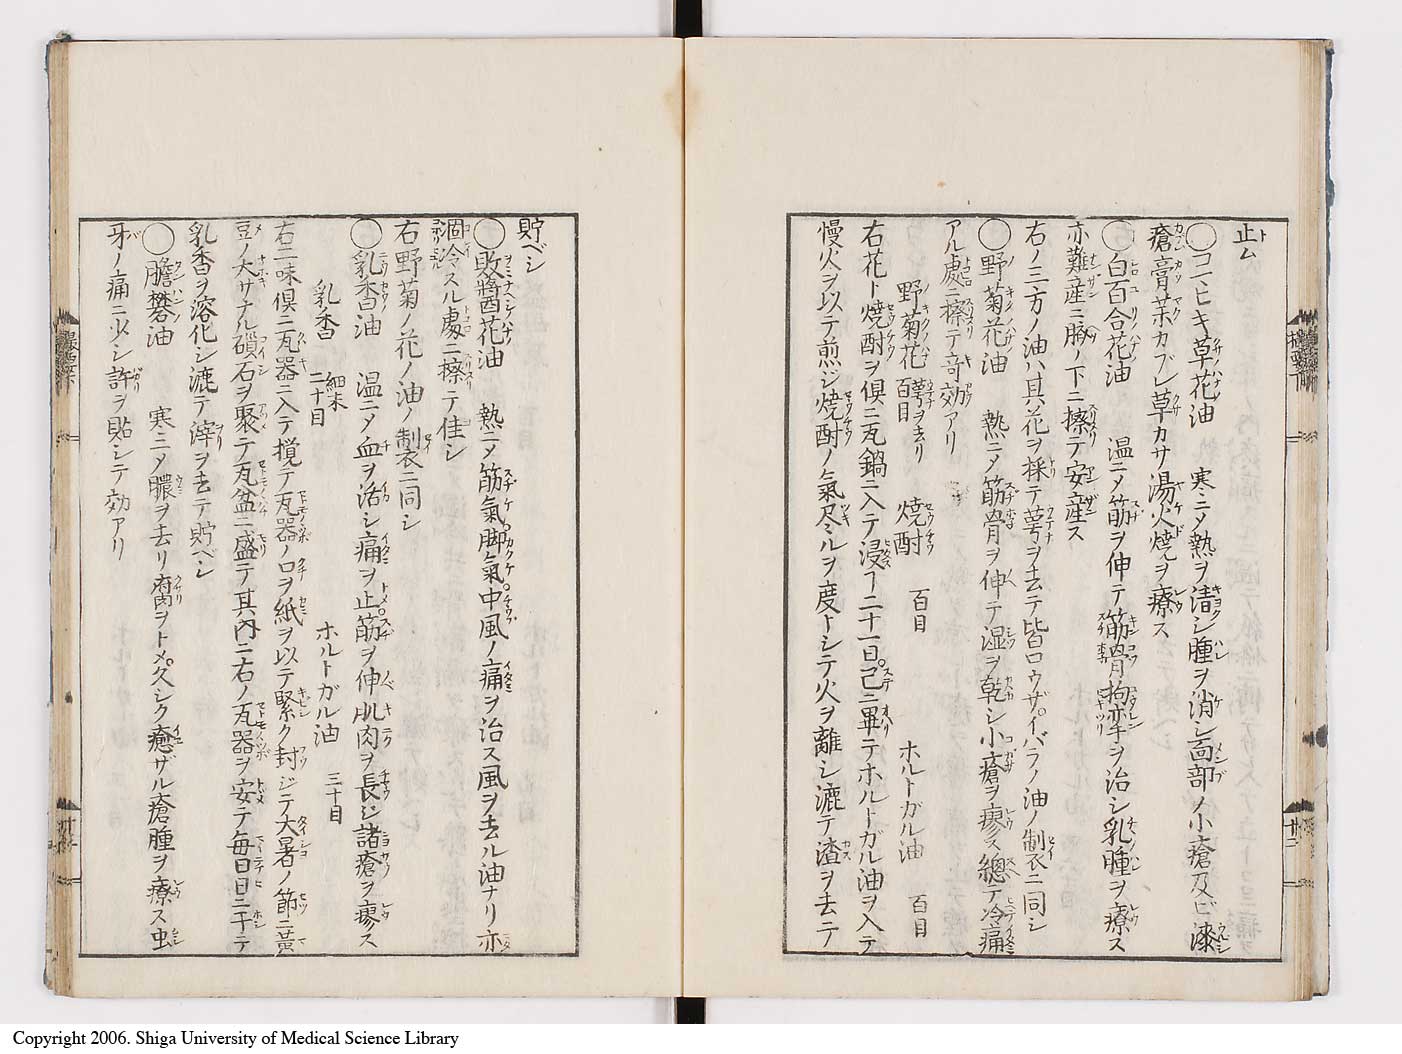 止ム
◯コンヒキ草花油　寒ニメ熱ヲ清シ腫ヲ消シ面部ノ小瘡及ビ漆
瘡膏藥カブレ草カサ湯火燒ヲ療ス
◯白百合花油　温ニメ筋ヲ伸テ筋骨拘攣ヲ治シ乳腫ヲ療ス
亦難産ニ臍ノ下ニ擦テ安産ス
右ノ三方ノ油ハ其花ヲ採テ萼ヲ去テ皆ロウザイバラノ油ノ製ニ同シ
◯野菊花油　熱ニメ筋骨ヲ伸テ湿ヲ乾シ小瘡ヲ療ス總テ冷痛
アル處ニ擦テ竒効アリ
野菊花 百目 萼ヲ去リ　燒酎 百目　ホルトガル油 百目
右花ト燒酎ヲ倶ニ瓦鍋ニ入テ浸ス丁二十一日已ニ畢テホルトガル油ヲ入テ
慢火ヲ以テ煎ジ燒酎ノ氣尽ルヲ度トシテ火ヲ離シ漉テ渣ヲ去ニテ
貯ベシ
◯敗醬花油　熱ニメ筋氣脚氣中風ノ痛ヲ治ス風ヲ去ル油ナリ亦
痼冷スル處ニ擦テ佳シ
右野菊ノ花ノ油ノ製ニ同シ
◯乳香油　温ニメ血ヲ活シ痛ヲ止筋ヲ伸肌肉ヲ長シ諸瘡ヲ療ス
乳香 細末 二十目　ホルトガル油 三十目
右二味倶ニ瓦器ニ入テ攪テ瓦器ノ口ヲ紙ヲ以テ緊ク封ジテ大暑ノ節ニ黃
豆ノ大サナル礒石ヲ聚テ瓦盆ニ盛テ其內ニ右ノ瓦器ヲ安テ毎日日ニ干テ
乳香ヲ溶化シ漉テ滓ヲ去テ貯ベシ
◯膽礬油　寒ニメ膿ヲ去リ腐ヲトメ久シク癒ザル瘡腫ヲ療ス虫
牙ノ痛ニ少シ許ヲ貼シテ効アリ
Copyright 2006. Shiga University of Medical Science Library